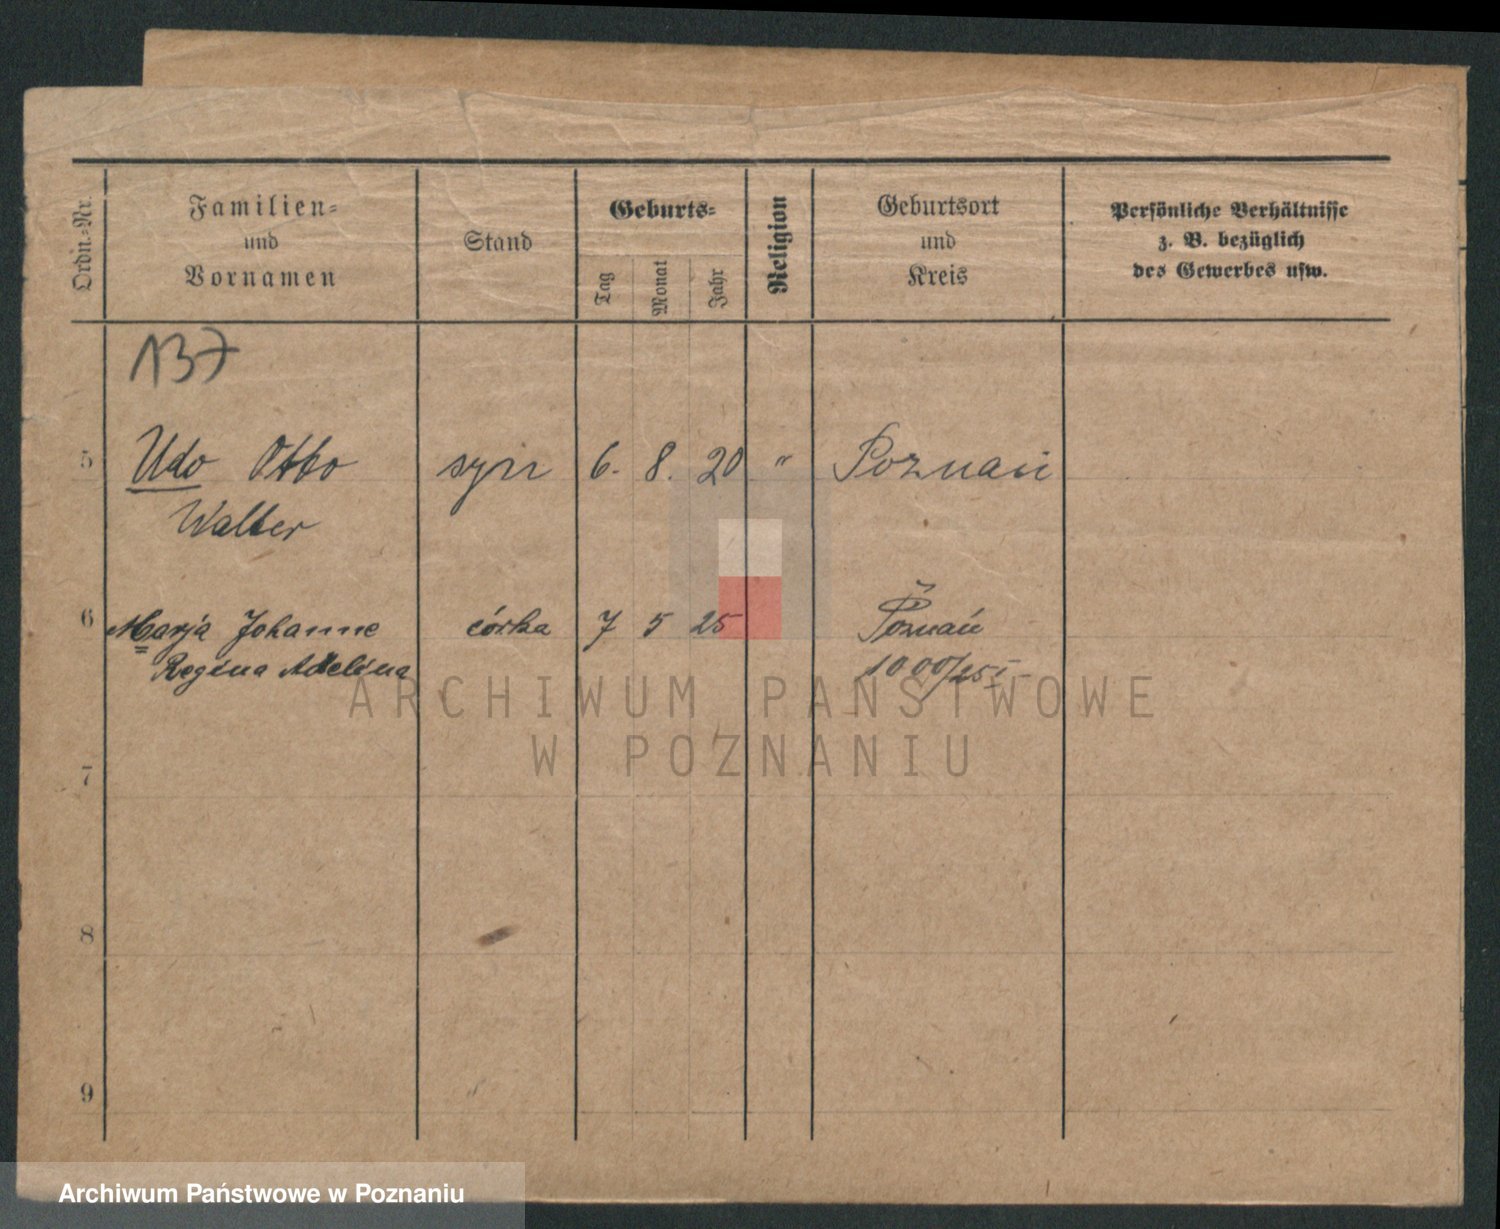 Ordn.-Nr.
Familien-
und
Vornamen
Stand
Geburts-
Tag
Monat
Jahr
Religion
Geburtsort
und
Kreis
Persönliche Verhältnisse
z. B. bezüglich
des Gewerbes usw.
137
5 Udo Otto syn 6. 8. 20 " Poznań
Walter
6 Marja Johanne córka 7 5 25 Poznań
Regina Adelina 1000/25
ARCHIWUM PAŃSTWOWE
W POZNANIU
7
8
9
Archiwum Państwowe w Poznaniu